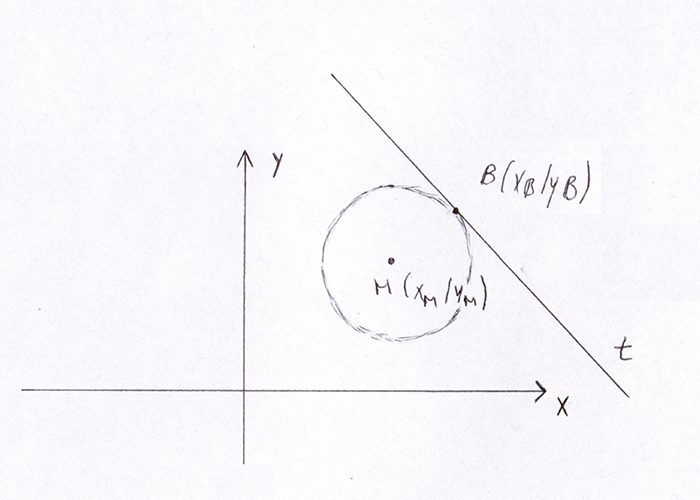 y
B(xB/yB)
M(xM/yM)
t
x